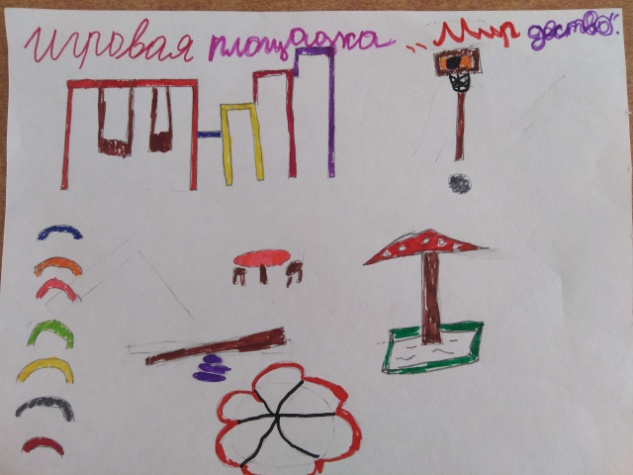 Игровая площадка „Мир деств۰о".